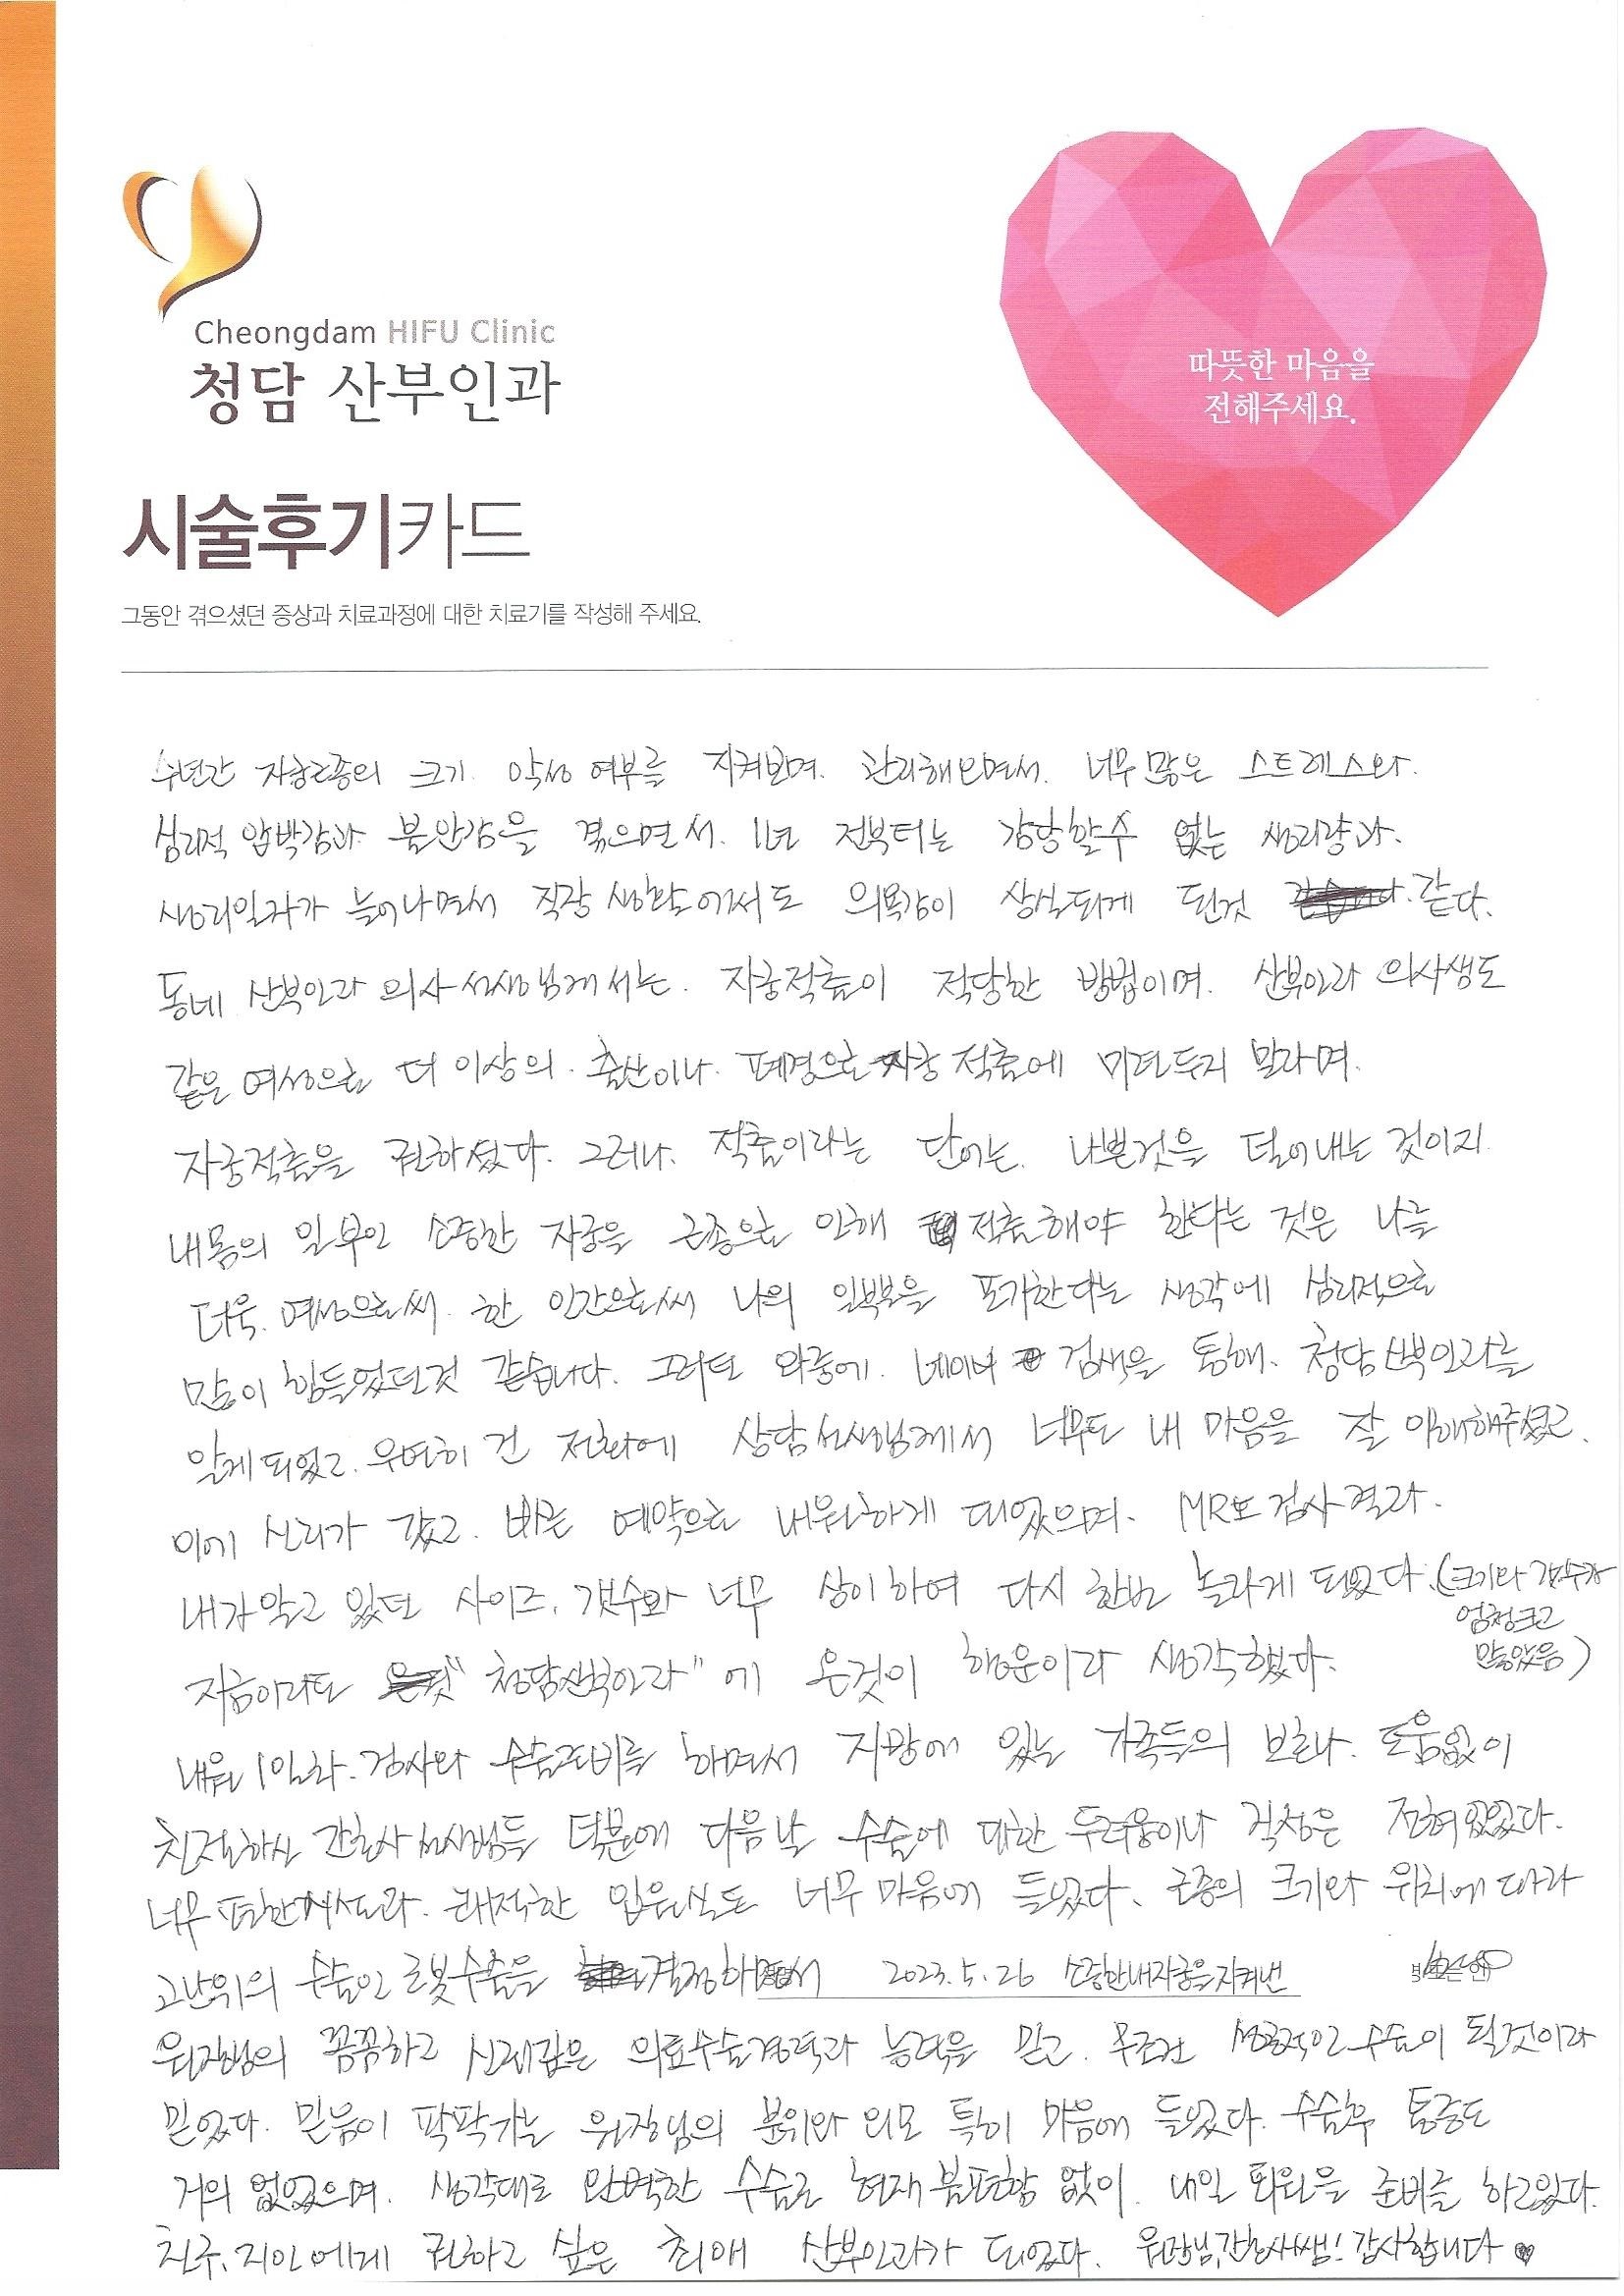 Cheongdam HIFU Clinic
청담 산부인과
따뜻한 마음을
전해주세요.
시술후기카드
그동안 겪으셨던 증상과 치료과정에 대한 치료기를 작성해 주세요.
수년간 자궁근종의 크기. 악성 여부를 지켜보며. 관리해오면서. 너무 많은 스트레스와.
심리적 압박감과 불안감을 겪으면서. 1년 전부터는 감당할수 없는 생리량과.
생리일자가 늘어나면서 직장 생활에서도 의욕감이 상실되게 된것 같다.
동네 산부인과 의사선생님께서는. 자궁적출이 적당한 방법이며. 산부인과 의사생도
같은 여성으로 더 이상의. 출산이나. 폐경으로 자궁 적출에 미련두지 말라며.
자궁적출을 권하셨다. 그러나. 적출이라는 단어는. 나쁜것을 덜어내는 것이지
내몸의 일부인 소중한 자궁을 근종으로 인해 적출해야 한다는 것은 나를
더욱. 여성으로써. 한 인간으로써 나의 일부분을 포기한다는 생각에 심리적으로
많이 힘들었던것 같습니다. 그러던 와중에. 네이버 검색을 통해. 청담산부인과를
알게되었고. 우연히 건 전화에 상담선생님께서 너무도 내 마음을 잘 이해해주셨고.
이에 신뢰가 갔고. 바로 예약으로 내원하게 되었으며. MR도 검사결과.
내가알고 있던 사이즈. 갯수와 너무 상이하여 다시 한번 놀라게 되었다. (크기와 갯수가
엄청크고
많았음)
지금이라도 "청담산부인과"에 온것이 행운이라 생각했다.
내원 1일차. 검사와 수술준비를 하면서 지방에 있는 가족들의 보호나. 도움없이
친절하신 간호사 선생님들 덕분에 다음날 수술에 대한 두려움이나 걱정은 전혀없었다.
너무 편한시설과. 쾌적한 입원실도 너무 마음에 들었다. 근종의 크기와 위치에 따라
고난위의 수술인 로봇수술을 결정하면서 2023.5.26 소중한내자궁을지켜낸
원장님의 꼼꼼하고 신뢰감은 의료수술경력과 능력을 믿고. 무조건 성공적인수술이 될것이라
믿었다. 믿음이 팍팍가는 원장님의 분위와 외모 특히 마음에 들었다. 수술후 통증도
거의 없었으며. 생각대로 완벽한 수술로 현재 불편함 없이. 내일 퇴원을 준비를 하고있다.
친구, 지인에게 권하고 싶은 최애 산부인과가 되었다. 원장님, 간호사쌤! 감사합니다 ♥